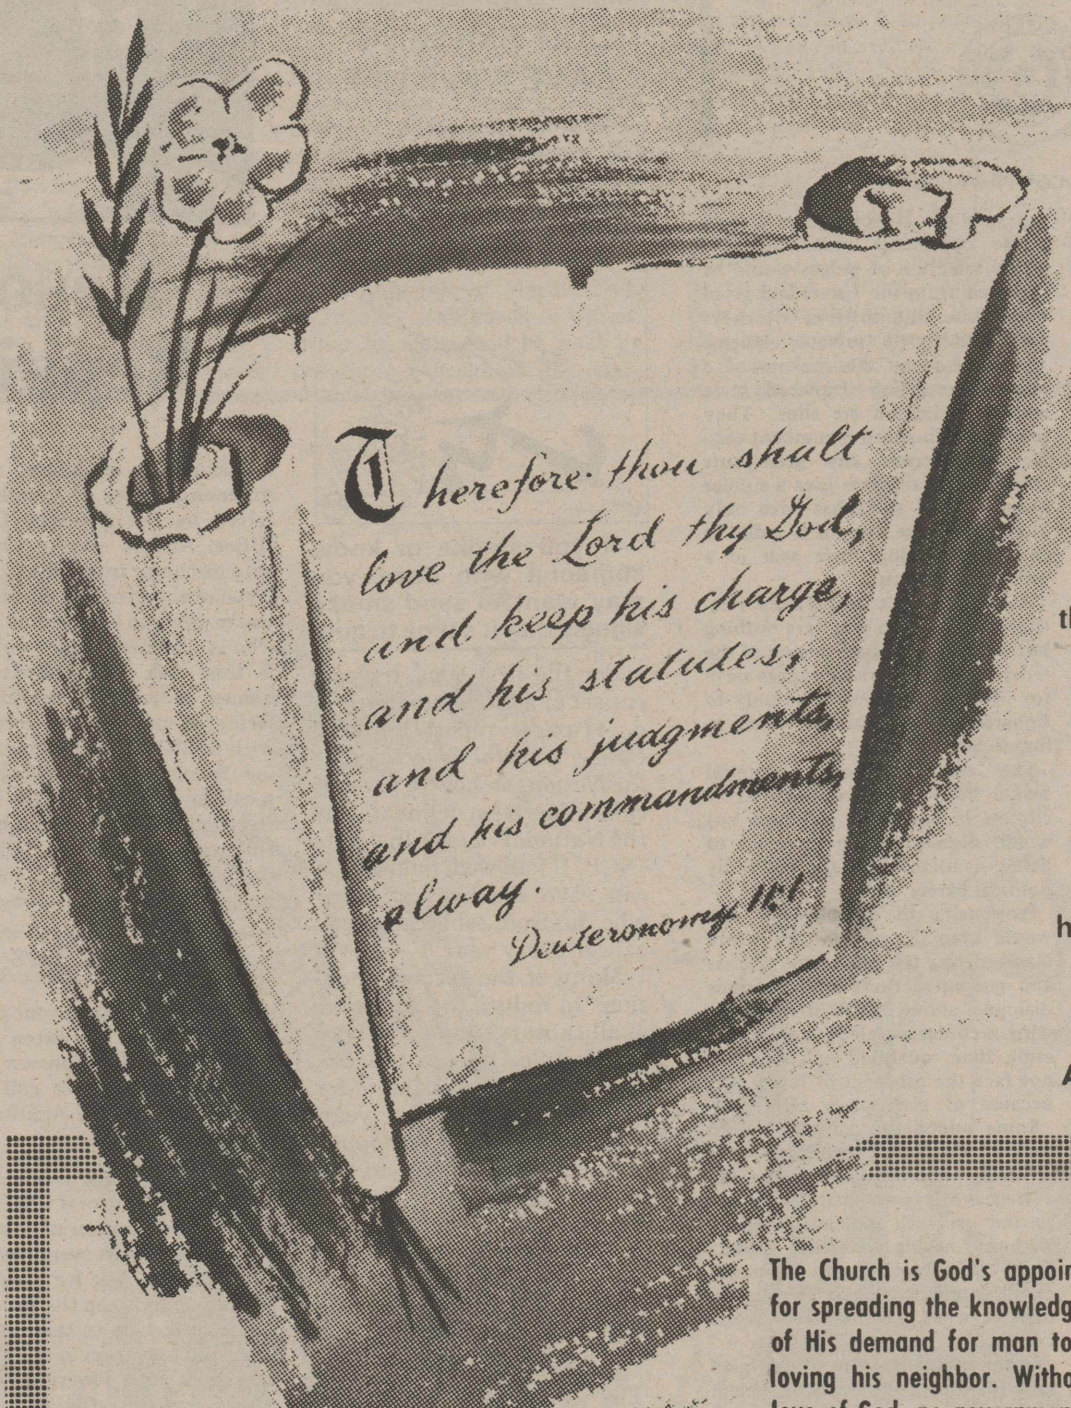 Therefore thou shalt
love the Lord thy God,
and keep his charge,
and his statutes,
and his judgments,
and his commandments,
alway.
Deuteronomy 11:1
th
h
A
The Church is God's appoin
for spreading the knowledg
of His demand for man to
loving his neighbor. Witho
love of God, no government